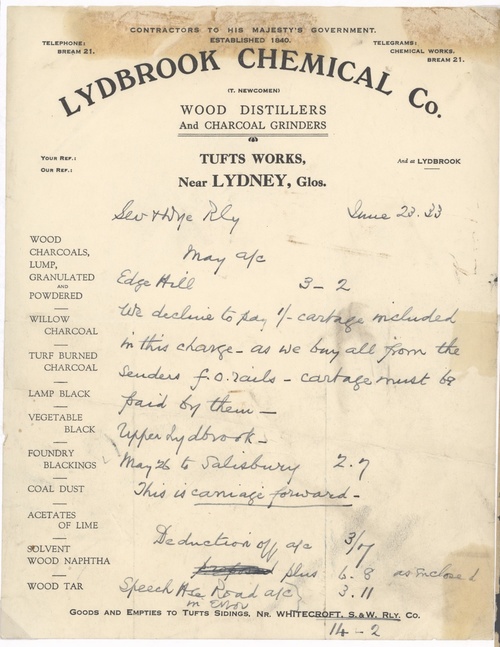 CONTRACTORS TO HIS MAJESTY'S GOVERNMENT.
ESTABLISHED 1840.
TELEPHONE:
BREAM 21.
TELEGRAMS:
CHEMICAL WORKS.
BREAM 21.
LYDBROOK CHEMICAL Co.
(T. NEWCOMEN)
WOOD DISTILLERS
And CHARCOAL GRINDERS
YOUR REF.:
OUR REF.:
TUFTS WORKS,
Near LYDNEY, Glos.
And at LYDBROOK
Sev & Wye Rly
June 23.33
May a/c
Edge Hill 3 - 2
We decline to pay 1/- cartage included
in this charge - as we buy all from the
senders f.o.rails - cartage must be
paid by them -
Upper Lydbrook -
May 26 to Salisbury 2.7
This is carriage forward -
Deduction off a/c 3/7
plus 6.8 as enclosed
Speech Hse Road a/c 3.11
in error
14 - 2
WOOD
CHARCOALS,
LUMP,
GRANULATED
AND
POWDERED
WILLOW
CHARCOAL
TURF BURNED
CHARCOAL
LAMP BLACK
VEGETABLE
BLACK
FOUNDRY
BLACKINGS
COAL DUST
ACETATES
OF LIME
SOLVENT
WOOD NAPHTHA
WOOD TAR
GOODS AND EMPTIES TO TUFTS SIDINGS, NR. WHITECROFT, S.& W. RLY. CO.